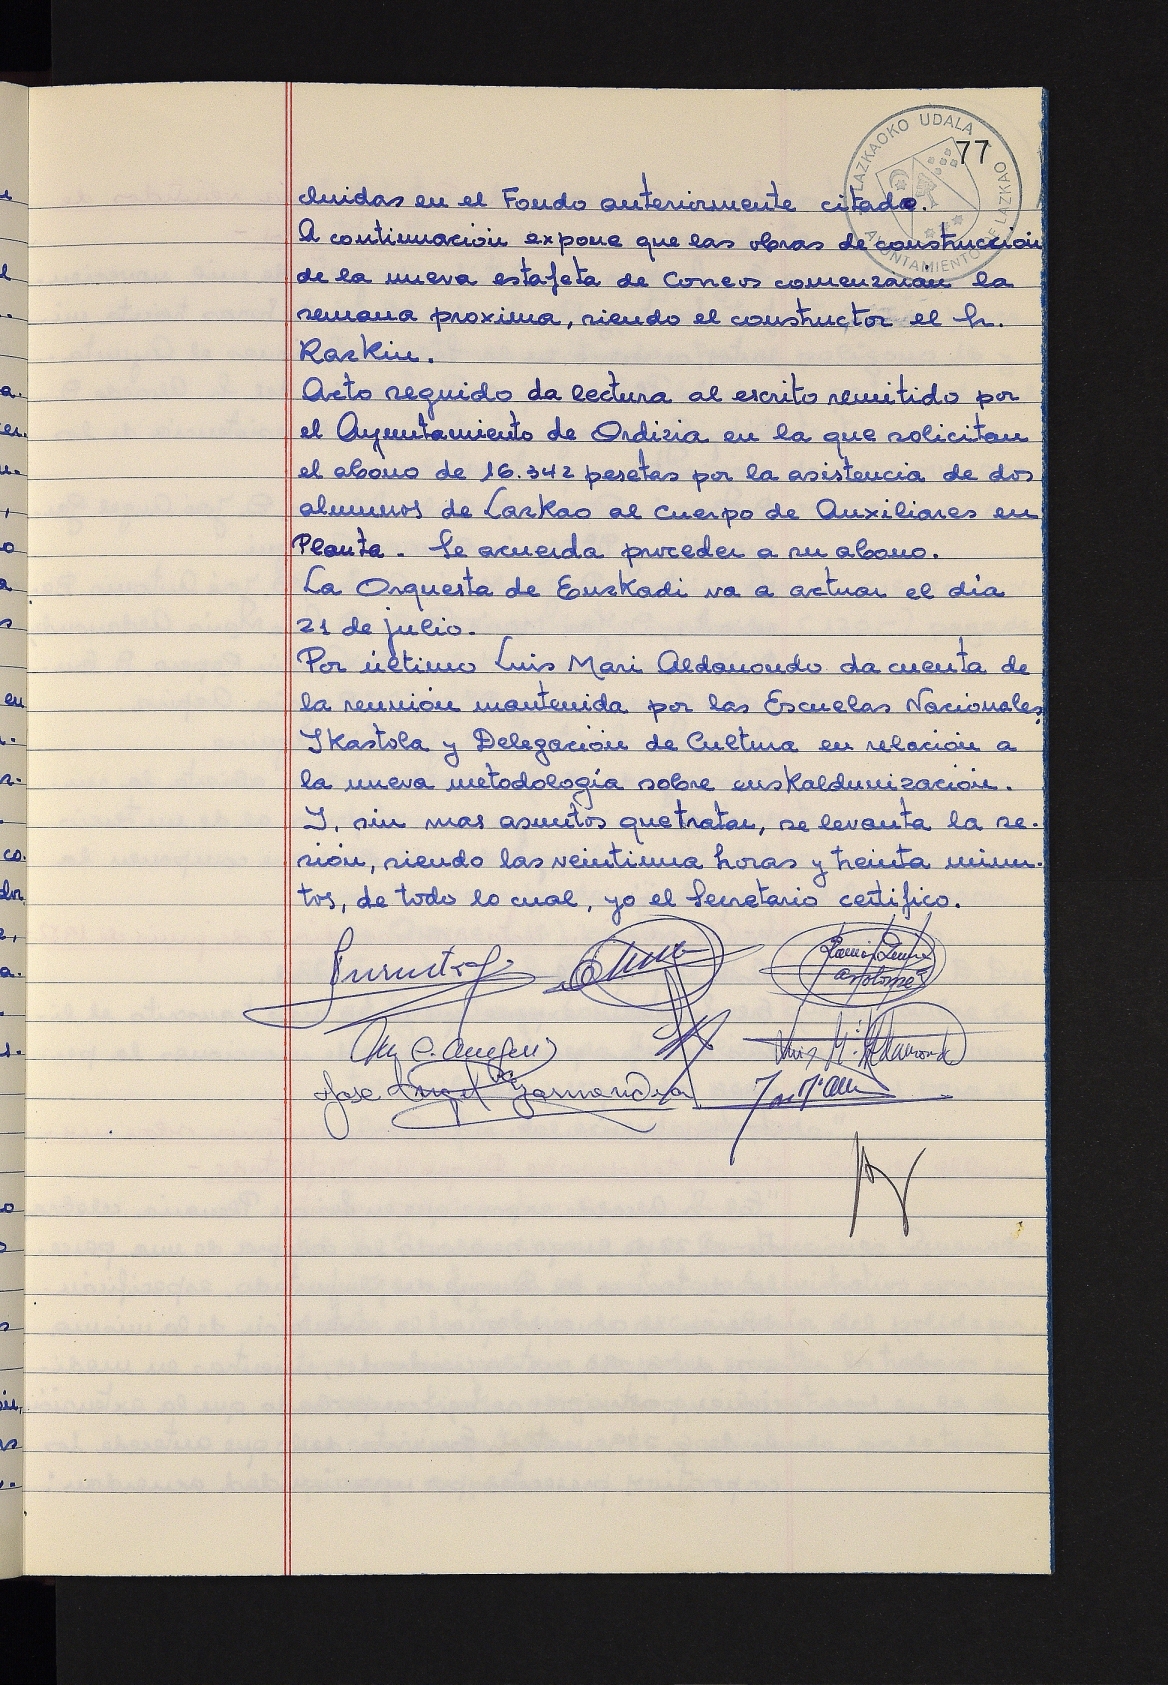 LAZKAOKO UDALA
AYUNTAMIENTO DE LAZKAO
77
cluidas en el Fondo anteriormente citado.
A continuación expone que las obras de construcción
de la nueva estafeta de Correos comenzarán la
semana proxima, siendo el constructor el Sr.
Razkin.
Acto seguido da lectura al escrito remitido por
el Ayuntamiento de Ordizia en la que solicitan
el abono de 16.342 pesetas por la asistencia de dos
alumnos de Lazkao al cuerpo de Auxiliares en
Planta. Se acuerda proceder a su abono.
La Orquesta de Euzkadi va a actuar el día
21 de julio.
Por último Luis Mari Aldanondo da cuenta de
la reunión mantenida por las Escuelas Nacionales,
Ikastola y Delegación de Cultura en relación a
la nueva metodología sobre euskaldunización.
Y, sin mas asuntos que tratar, se levanta la se-
sión, siendo las veintiuna horas y treinta minu-
tos, de todo lo cual, yo el Secretario certifico.
Luis Mª Aldanondo
Jose Angel Garmendia